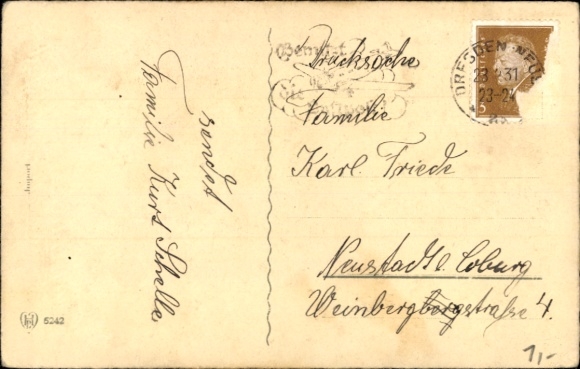 sendet
Familie Kurt Schelle
Import
5242
Drucksache
Familie
Karl Friede
Neustadt b. Coburg
Weinbergstraße 4.
DRESDEN-NEU
23. .31
23-24
Benutzt
1,-